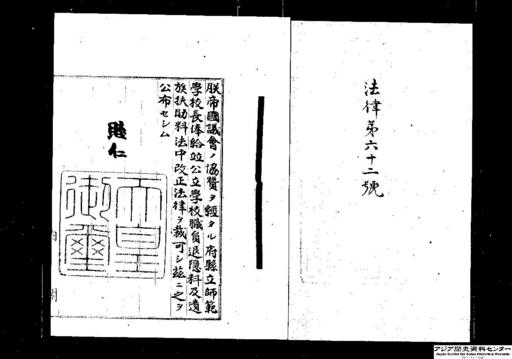 法律第六十二號
朕帝國議會ノ協贊ヲ經タル府縣立師範
學校長俸給竝公立學校職員退隱料及遺
族扶助料法中改正法律ヲ裁可シ茲ニ之ヲ
公布セシム
睦仁
天皇
御璽
内
アジア歴史資料センター
Japan Center for Asian Historical Records